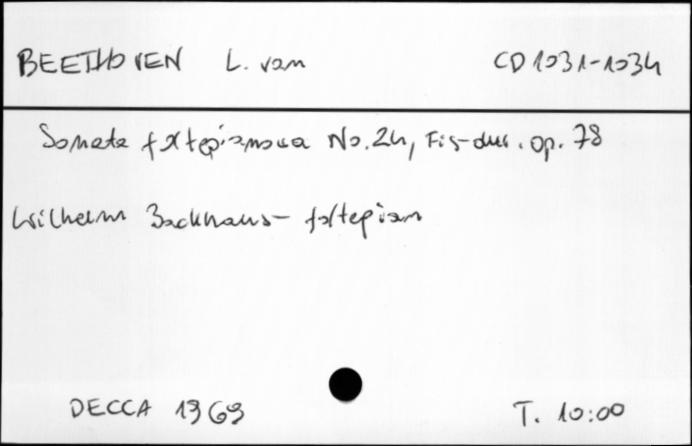 BEETHOVEN L. van CD 1031-1034
Sonata fortepianowa No. 24, Fis-dur. op. 78
Wilhelm Backhaus - fortepian
DECCA 1969 T. 10:00